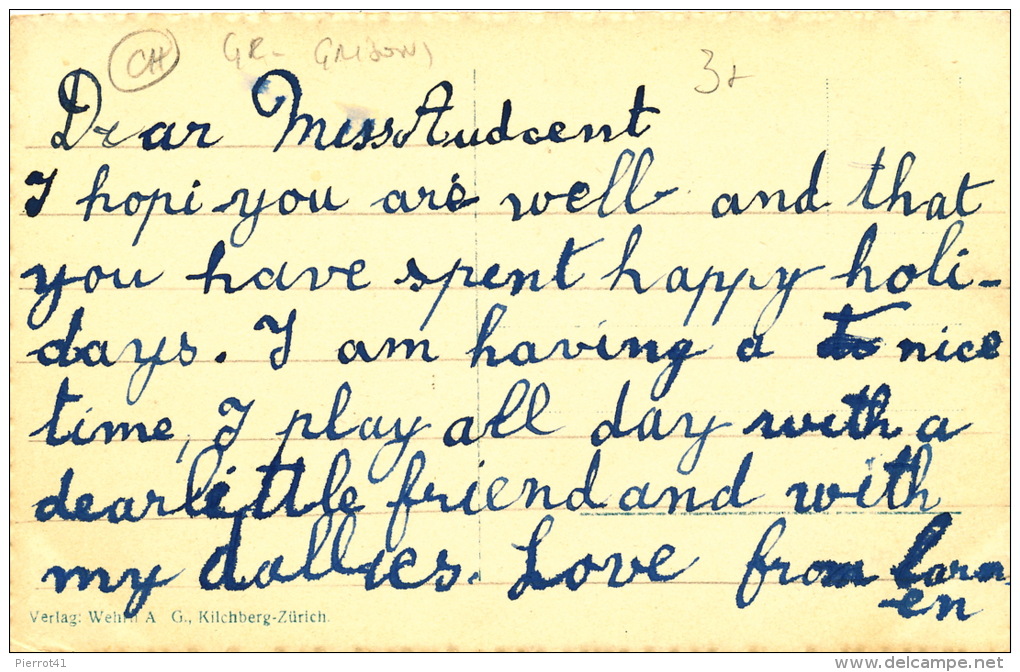 CH GR - GRISONS 3+
Dear Miss Audcent
I hopi you are well and that
you have spent happy holi-
days. I am having a nice
time, I play all day with a
dear little friend and with
my dollies. Love from Carm-
en
Verlag: Wehrli A G., Kilchberg-Zürich.
Pierrot41
delcampe.net